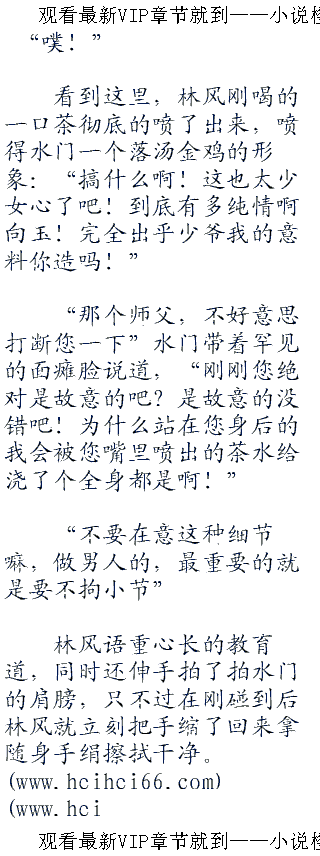 观看最新VIP章节就到——小说
“噗！”
看到这里，林风刚喝的
一口茶彻底的喷了出来，喷
得水门一个落汤金鸡的形
象：“搞什么啊！这也太少
女心了吧！到底有多纯情啊
向玉！完全出乎少爷我的意
料你造吗！”
“那个师父，不好意思
打断您一下”水门带着罕见
的面瘫脸说道，“刚刚您绝
对是故意的吧？是故意的没
错吧！为什么站在您身后的
我会被您嘴里喷出的茶水给
浇了个全身都是啊！”
“不要在意这种细节
嘛，做男人的，最重要的就
是要不拘小节”
林风语重心长的教育
道，同时还伸手拍了拍水门
的肩膀，只不过在刚碰到后
林风就立刻把手缩了回来拿
随身手绢擦拭干净。
(www.hcihci66.com)
(www.hci
观看最新VIP章节就到——小说